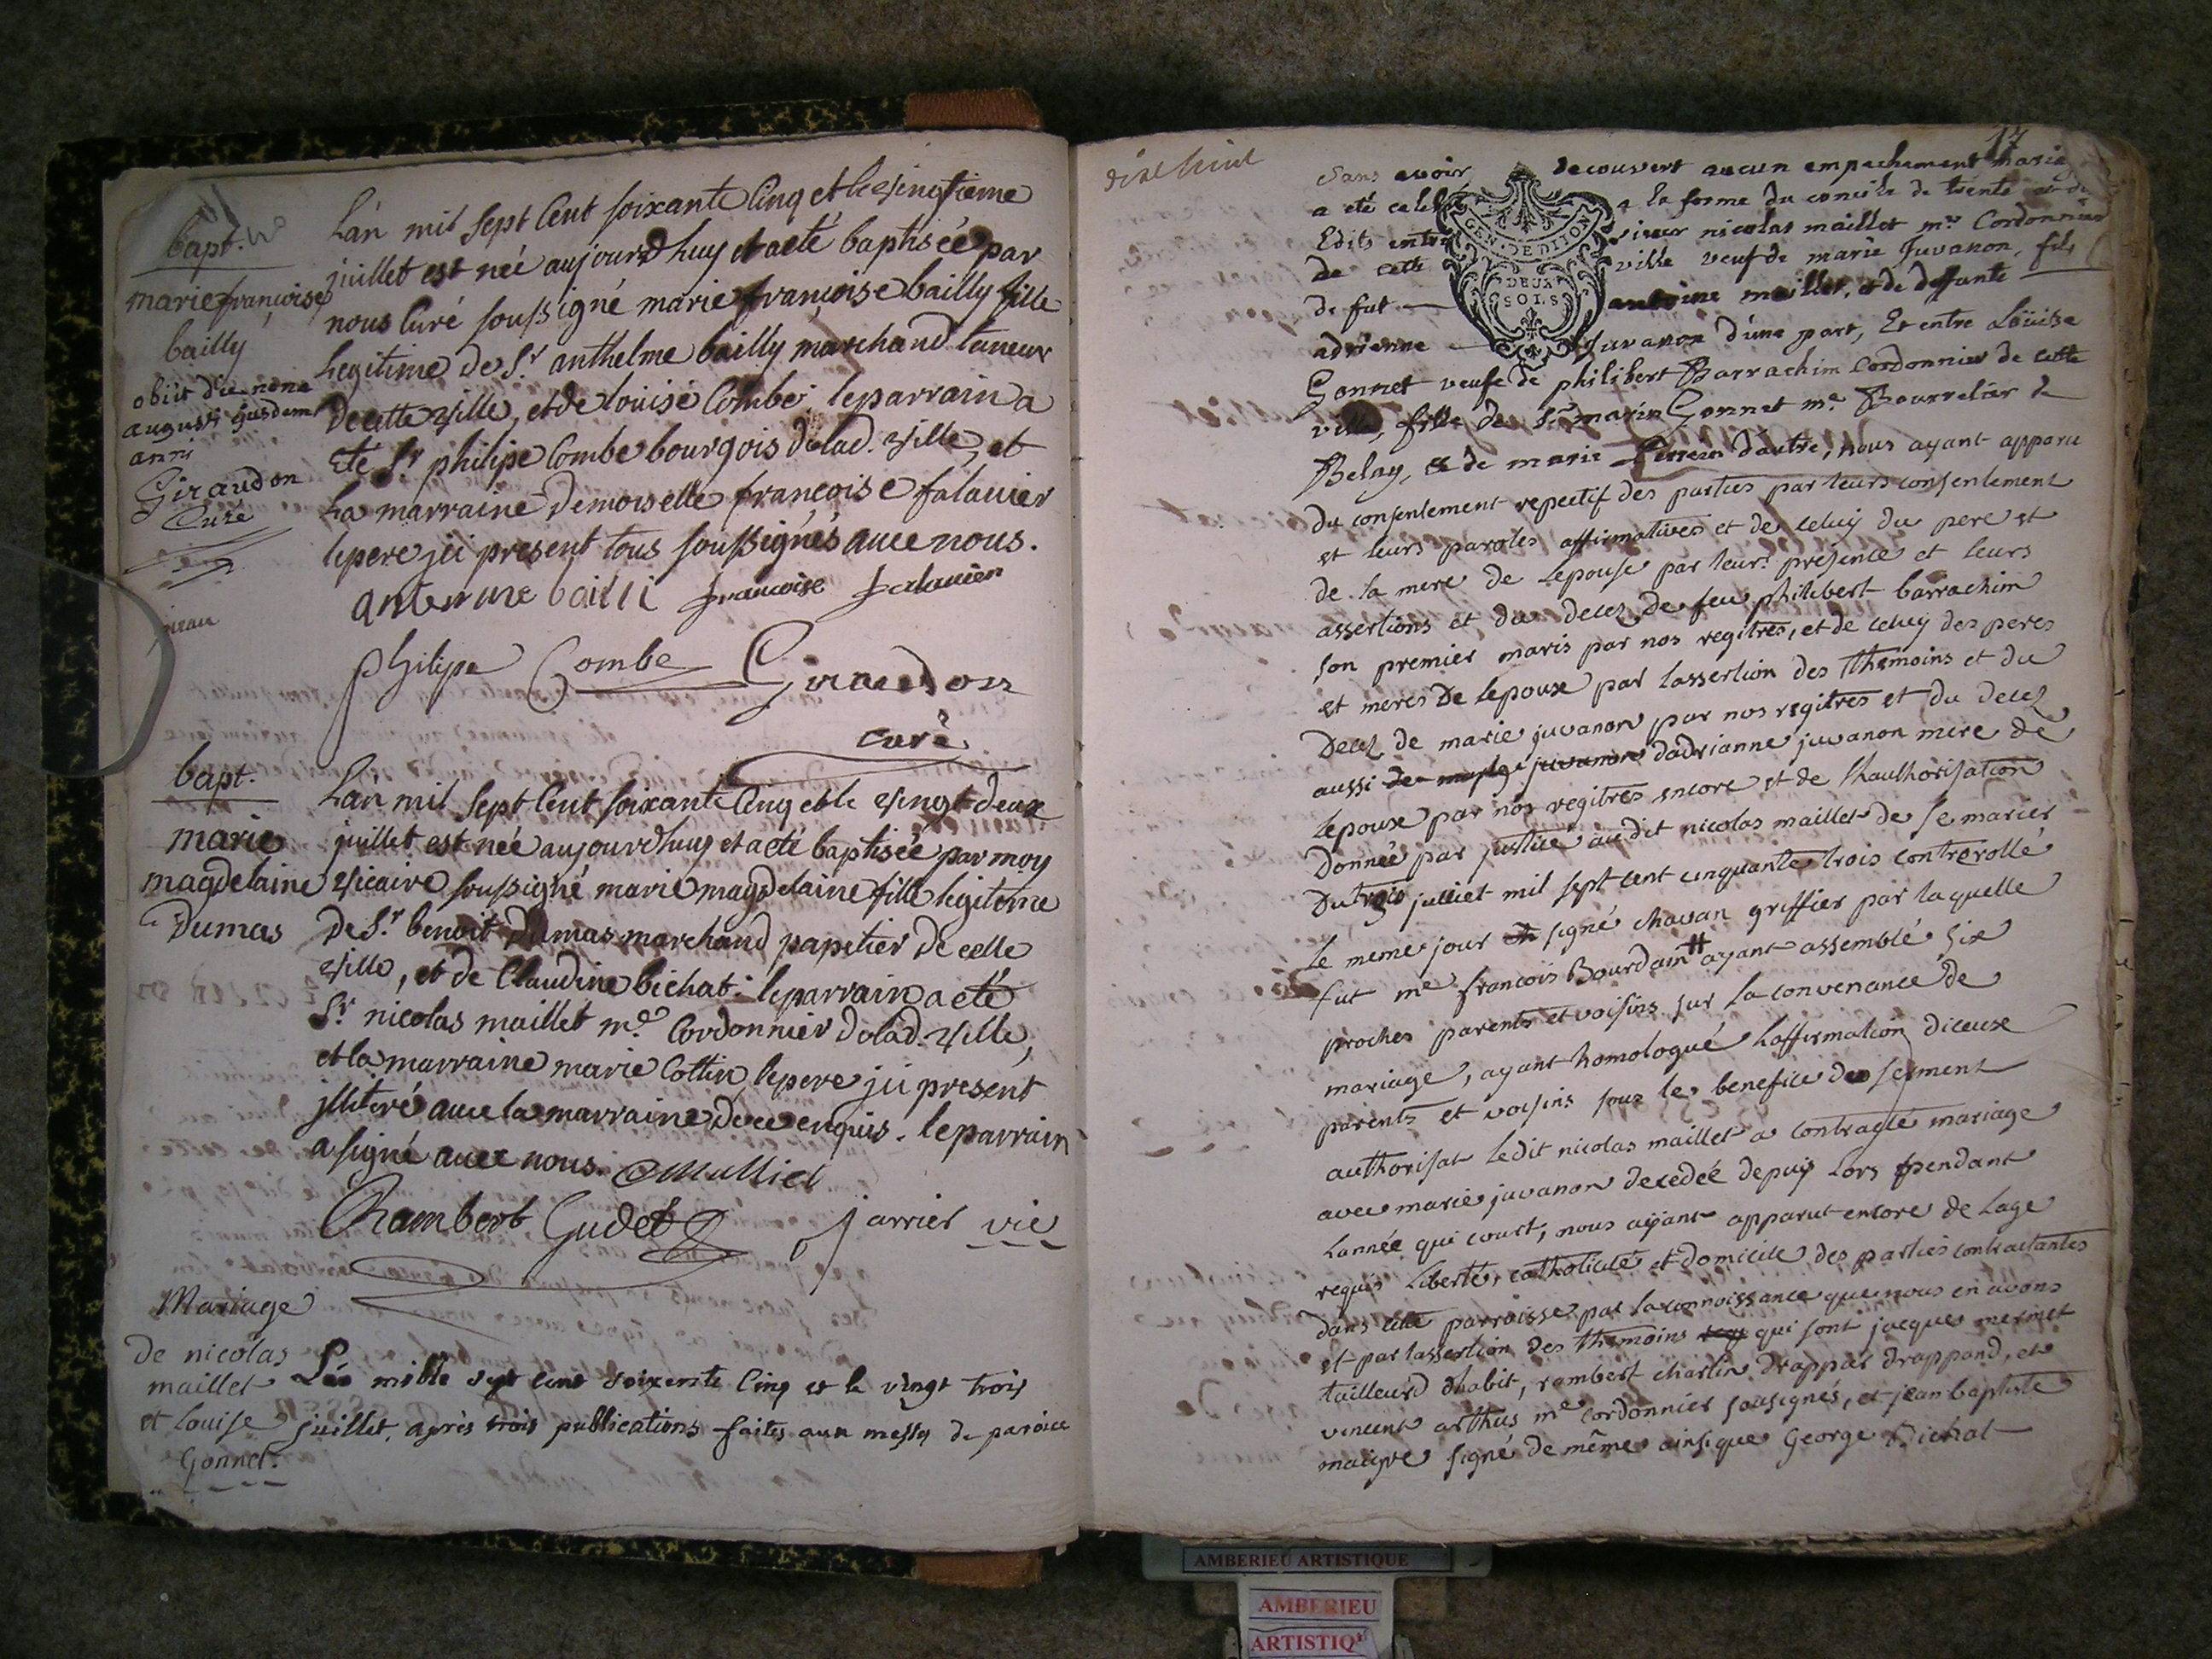 bapt.
marie françoise
bailly
obiit die nona
augusti ejusdem
anni
Giraudon
Curé
Lán mil sept Cent soixante Cinq et le vingtieme
juillet est neé aujourdhuy et a eté baptiseé par
nous Curé soussigné marie françoise bailly fille
Legitime de Sr. anthelme bailly marchand taneur
de cette ville, et de louise Combe: le parrain a
eté Sr philipe Combe bourgois de lad. ville, et
La marraine Demoiselle françoise falavier
le pere ici present tous soussignés avec nous.
antermre bailli francoise falavier
philipe Combe Giraudon
curé
bapt.
marie
magdelaine
Dumas
Lán mil sept Cent soixante Cinq et le vingt deux
juillet est neé aujourdhuy et a eté baptiseé par moy
vicaire soussigné marie magdelaine fille legiteme
de Sr. benoit Dumas marchand papetier de cette
ville, et de Claudine bichat: le parrain a eté
Sr. nicolas maillet me Cordonnier de lad. ville,
et la marraine marie Cottin, le pere ici present
illiteré avec la marraine de ce enquis. le parrain
a signé avec nous. Malliet
Rambert Gudet jarrier vic
Mariage
de nicolas
maillet
et Louise
Gonnet.
Lán mille sept cent soixente Cinq et le vingt trois
juillet, après trois publications faites aux messes de paroice
17
dixe huit
Sans avoir decouvert aucun empechement mariage
a eté celebré a la forme du concile de trente et des
Edits entre sieur nicolas maillet me Cordonnier
de cette ville veuf de marie Juvanon, fils
de fut antoine maillet, et de deffunte
adrienne Juvanon d'une part, Et entre Loüise
Gonnet veuve de philibert Barrachim Cordonnier de cette
ville, fille de Sr marin Gonnet me Bourrelier de
Belay, et de marie Perrein d'autre, nous ayant apparu
du consentement repectif des parties par leurs consentement
et leurs paroles affirmatives et de celuy du pere et
de la mere de lepouse par leurs presence et leurs
assertions et du decez de feu philibert barrachim
son premier maris par nos regitres, et de celuy des peres
et meres de lepoux par lassertion des themoins et du
Decez de marie juvanon par nos regitres et du decez
aussi de juvanon dadrianne juvanon mere de
lepoux par nos regitres encore et de lhauthorisation
donnée par justice audit nicolas maillet de se marier
du trois julliet mil sept cent cinquante trois controrollé
le meme jour signé chavan griffier par laquelle
fut me francois Bourdain ayant assemblé six
proches parents et voisins sur la convenance de
mariage, ayant homologué laffirmation diceux
parents et voisins sous le benefice du serment
authorisat ledit nicolas maillet a contracté mariage
avec marie juvanon decedée depuis Lors pendant
Lannée qui court, nous aÿant apparut encore de Lage
requis Liberté, catholicité et domicile des parties contractantes
dans cette parroisse par la connoissance que nous en avons
et par lassertion des themoins qui sont jacques mermet
tailleurd dhabit, rambert charlin drappier drappand, et
vincent arthus me cordonnier sousignés, et jean baptiste
maigre signé de même ainsi que George Bichat
GEN. DE DIJON
DEUX
SOLS
AMBERIEU ARTISTIQUE
AMBERIEU
ARTISTIQ